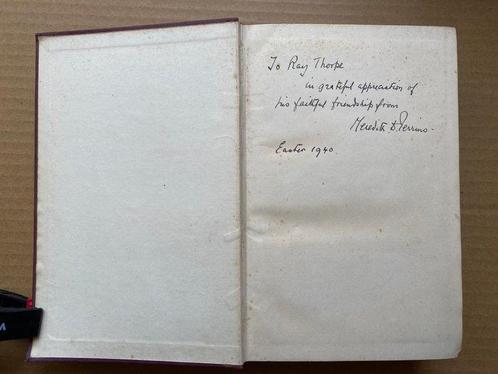 To Ray Thorpe
in grateful appreciation of
his faithful friendship from
Meredith B. Perrins.
Easter 1940.